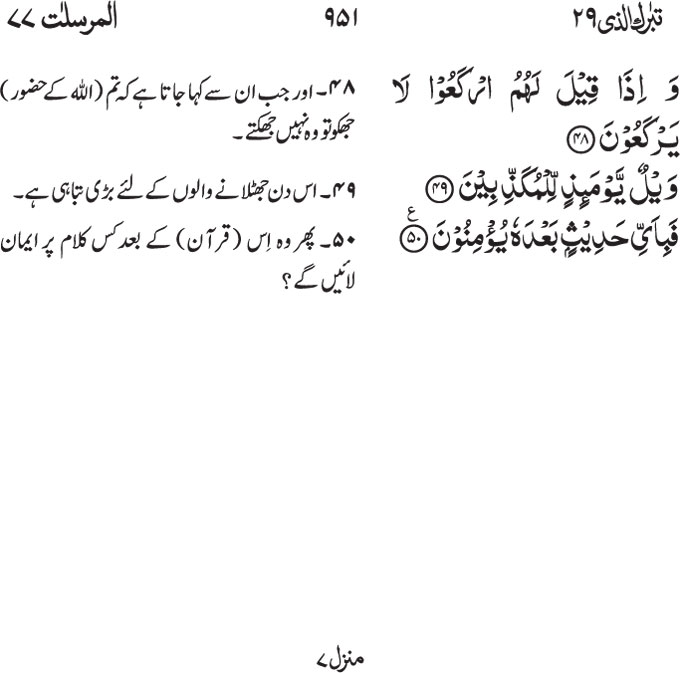 تبٰرک الذی ۲۹
۹۵۱
المرسلٰت ۷۷
وَ اِذَا قِیْلَ لَهُمُ ارْكَعُوْا لَا
یَرْكَعُوْنَ ﴿۴۸﴾
وَیْلٌ یَّوْمَىِٕذٍ لِّلْمُكَذِّبِیْنَ ﴿۴۹﴾
فَبِاَیِّ حَدِیْثٍۭ بَعْدَهٗ یُؤْمِنُوْنَ ﴿۵۰﴾ ع
۴۸۔ اور جب ان سے کہا جاتا ہے کہ تم (اللہ کے حضور)
جھکو تو وہ نہیں جھکتے۔
۴۹۔ اس دن جھٹلانے والوں کے لئے بڑی تباہی ہے۔
۵۰۔ پھر وہ اِس (قرآن) کے بعد کس کلام پر ایمان
لائیں گے؟
منزل ۷